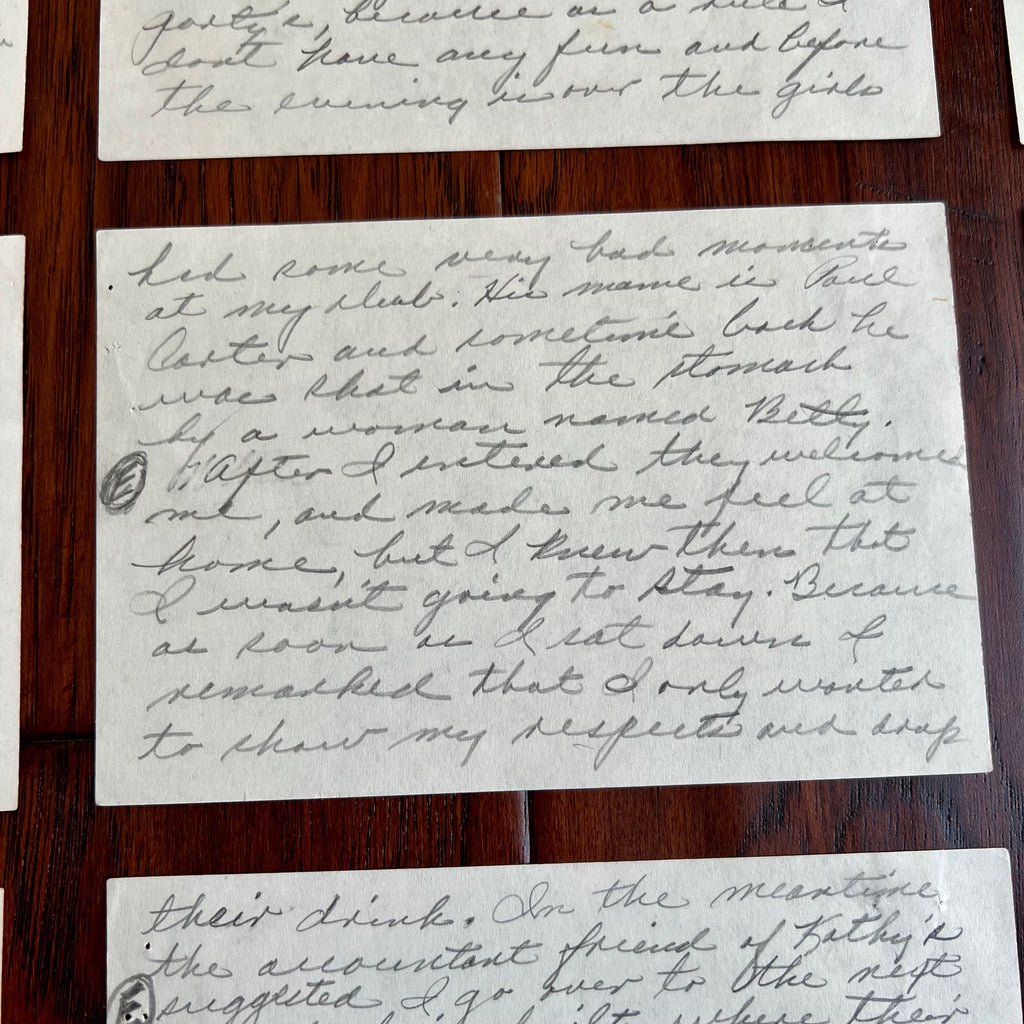 party's, because as a rule I
dont have any fun and before
the evening is over the girls
had some very bad moments
at my club. His name is Paul
Carter and sometime back he
was shot in the stomach
by a woman named Betty.
E After I entered they welcomed
me, and made me feel at
home, but I knew then that
I wasn't going to stay. Because
as soon as I sat down I
remarked that I only wanted
to show my respects and drop
their drink. In the meantime
the accountant friend of Kathy's
E suggested I go over to the next
where their